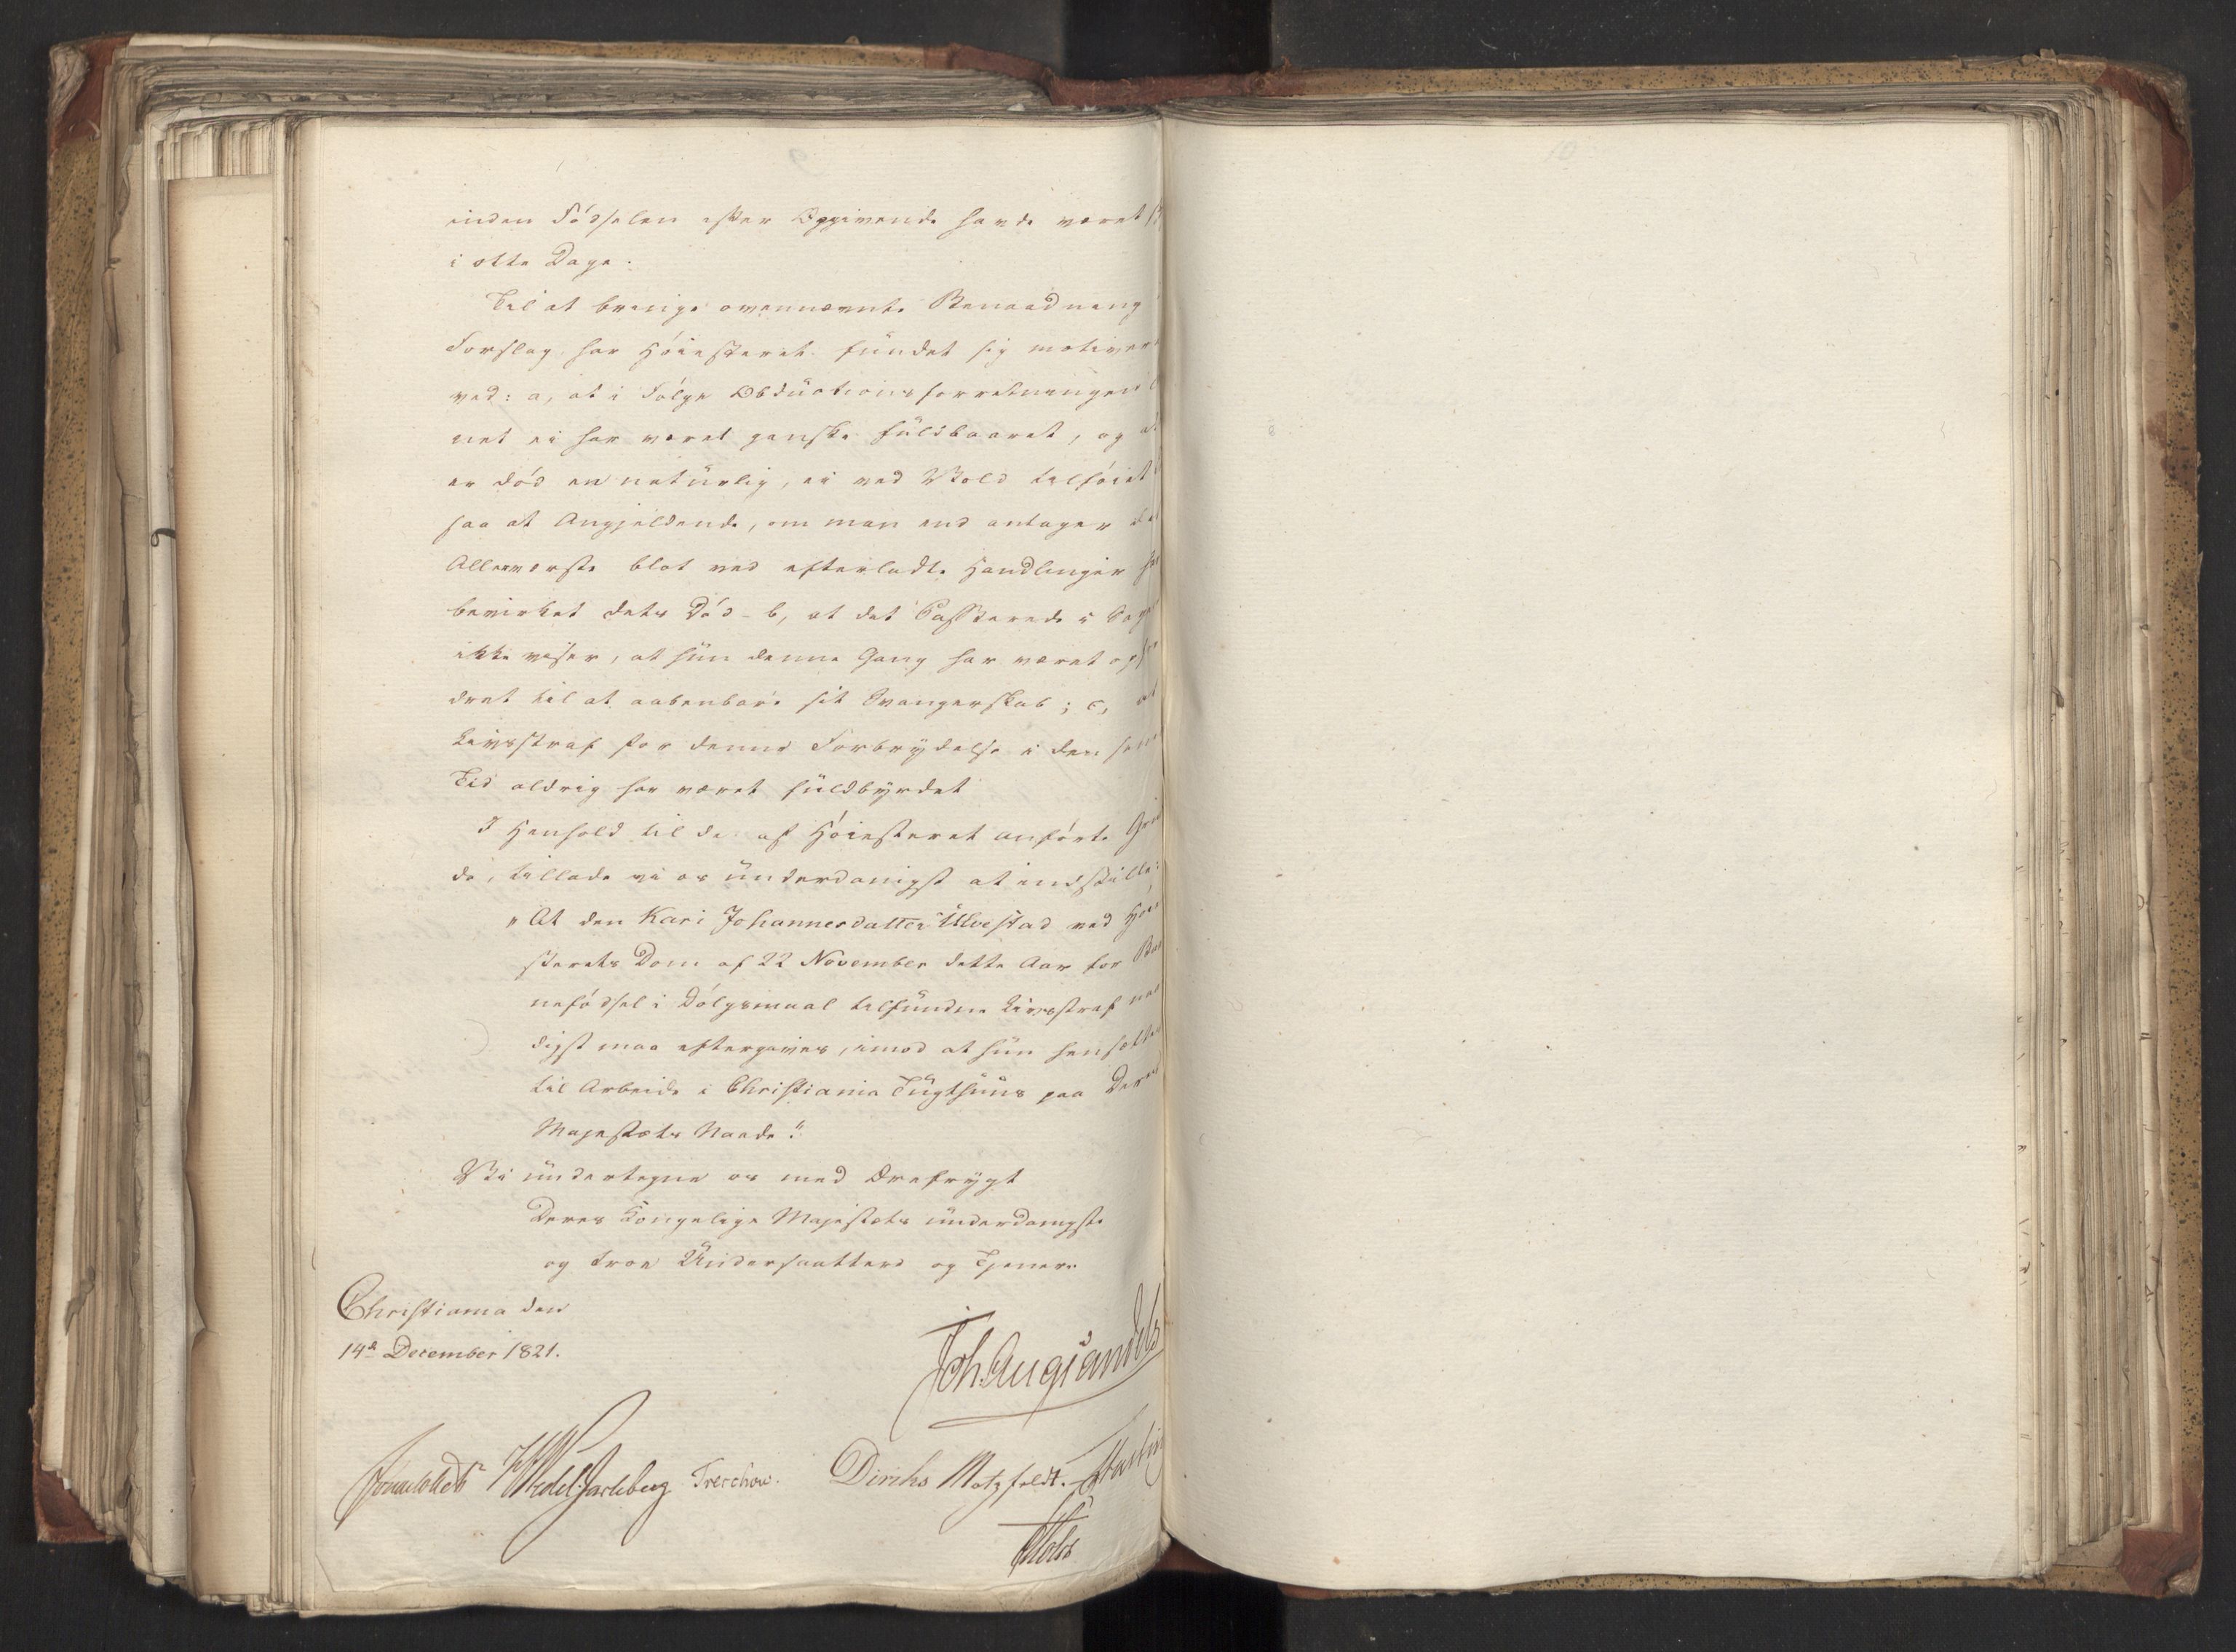 inden Fødselen efter Opgivende havde været
i otte Dage.
Til at bringe ovennævnte Benaadning
Forslag, har Høiesteret fundet sig motiver
ved: a, at i Følge Obductionsforretningen
net ei har været ganske fuldbaaret, og at
er død en naturlig, ei ved Vold tilføiet
saa at Angjeldende, om man end antager det
Allerværste blot ved efterladte Handlinger har
bevirket dets Død - b, at det Passerede i Sagen
ikke viser, at hun denne Gang har været opfor
dret til at aabenbare sit Svangerskab; c, at
Livsstraf for denne Forbrydelse i den sene
Tid aldrig har været fuldbyrdet
I Henhold til de af Høiesteret anførte Grün
de, tillade vi os underdanigst at indstille:
"At den Kari Johannesdatter Ulvestad ved Høie
sterets Dom af 22 November dette Aar for Bar
nefødsel i Dølgsmaal tilfundne Livsstraf naa
digst maa eftergives, imod at hun hensættes
til Arbeide i Christiania Tugthuus paa Deres
Majestæts Naade."
Vi undertegne os med Ærefrygt
Deres Kongelige Majestæts underdanigste
og troe Undersaatter og Tjenere
Christiania den
14d December 1821.
Joh. Aug. Sandels
Sommerfeldt HWedel Jarlsberg Treschow. Diriks Motzfeldt.
Holst